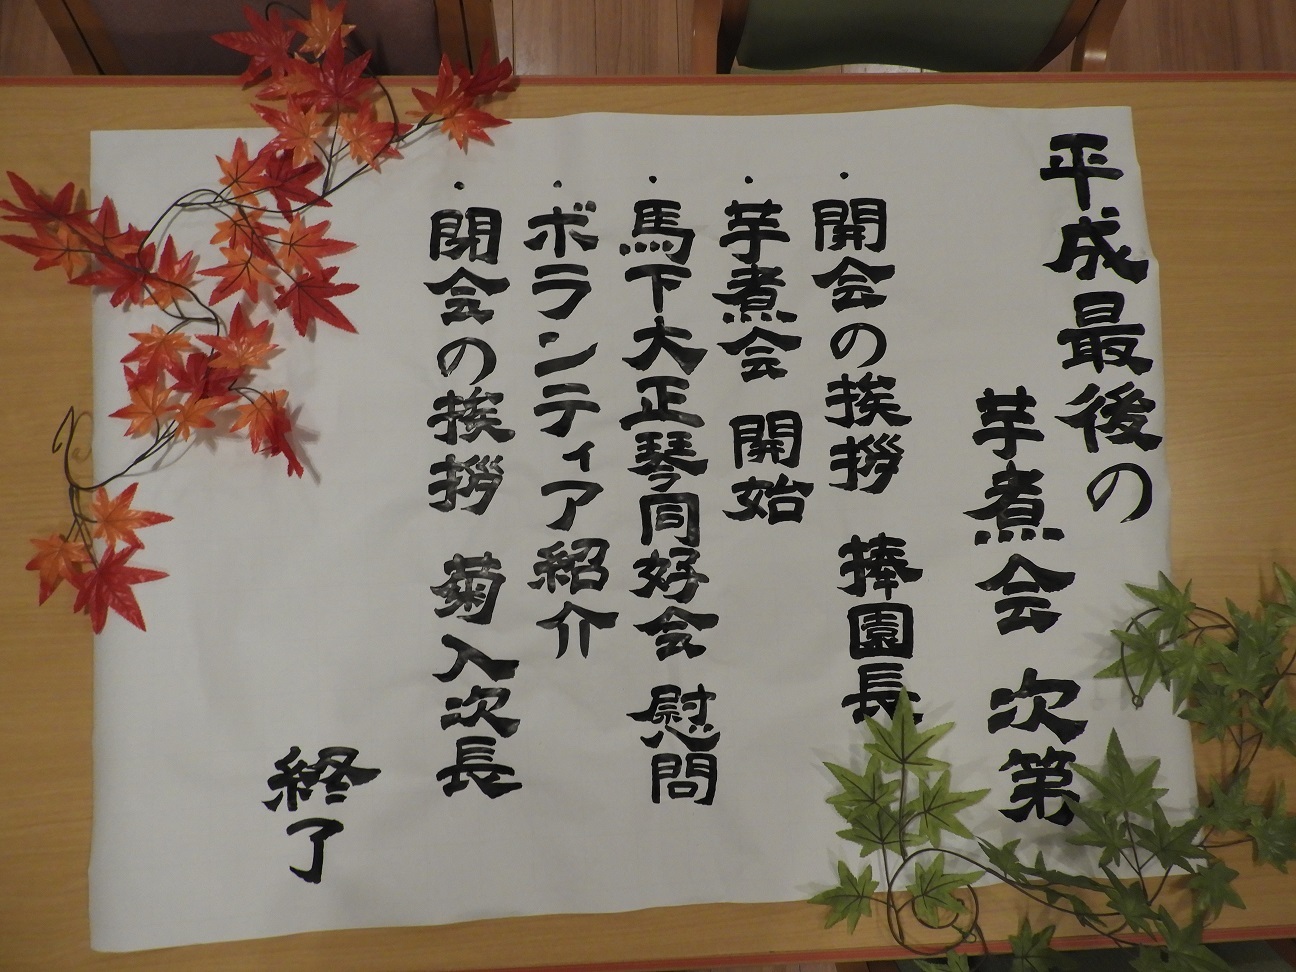 平成最後の
芋煮会 次第
・開会の挨拶 捧園長
・芋煮会 開始
・馬下大正琴同好会 慰問
・ボランティア紹介
・閉会の挨拶 菊入次長
終了